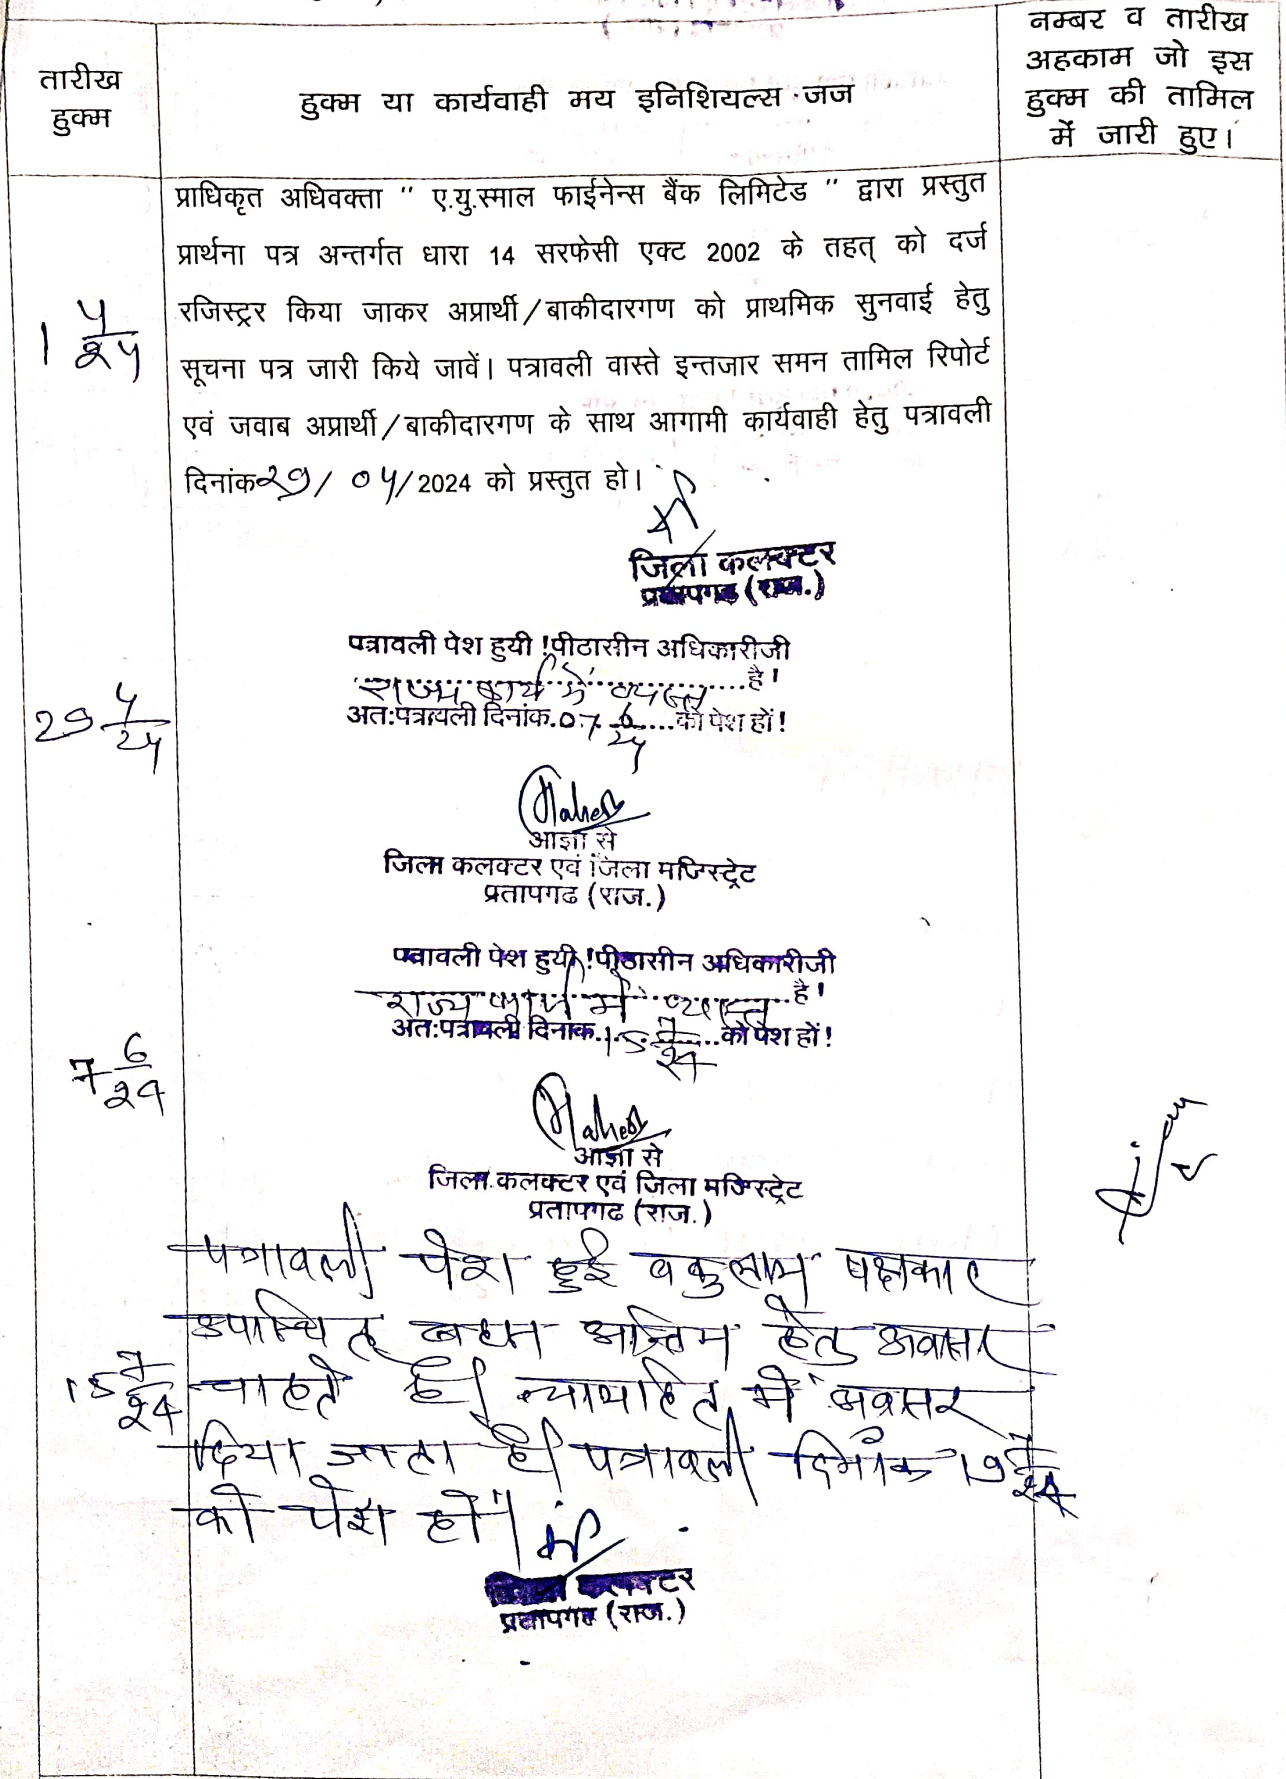 तारीख
हुक्म
हुक्म या कार्यवाही मय इनिशियल्स जज
नम्बर व तारीख
अहकाम जो इस
हुक्म की तामिल
में जारी हुए।
प्राधिकृत अधिवक्ता " ए.यु.स्माल फाईनेन्स बैंक लिमिटेड " द्वारा प्रस्तुत
प्रार्थना पत्र अन्तर्गत धारा 14 सरफेसी एक्ट 2002 के तहत् को दर्ज
1 4/24
रजिस्ट्रर किया जाकर अप्रार्थी/बाकीदारगण को प्राथमिक सुनवाई हेतु
सूचना पत्र जारी किये जावें। पत्रावली वास्ते इन्तजार समन तामिल रिपोर्ट
एवं जवाब अप्रार्थी/बाकीदारगण के साथ आगामी कार्यवाही हेतु पत्रावली
दिनांक 29/04/2024 को प्रस्तुत हो।
जिला कलक्टर
प्रतापगढ (राज.)
पत्रावली पेश हुयी !पीठासीन अधिकारीजी
राज्य कार्य में व्यस्त है!
29 4/24
अतः पत्रावली दिनांक.07 6/24 को पेश हों!
Mahesh
आज्ञा से
जिला कलक्टर एवं जिला मजिस्ट्रेट
प्रतापगढ (राज.)
पत्रावली पेश हुयी !पीठासीन अधिकारीजी
राज्य कार्य में व्यस्त है!
अतः पत्रावली दिनांक 15 7/24 को पेश हों!
7 6/24
Mahesh
आज्ञा से
जिला कलक्टर एवं जिला मजिस्ट्रेट
प्रतापगढ (राज.)
पत्रावली पेश हुई वकुलाय पक्षकार
उपस्थित बहस अन्तिम हेतु अवसर
15 7/24
चाहते है। न्यायहित में अवसर
दिया जाता है। पत्रावली दिनांक 19
को पेश हों।
कलक्टर
प्रतापगढ (राज.)